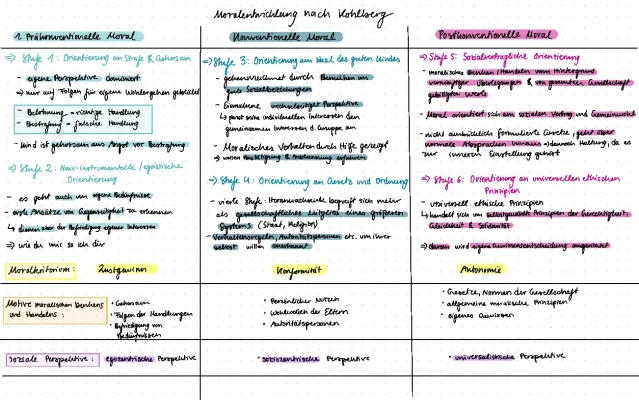 Moralentwicklung nach Kohlberg
1. Präkonventionelle Moral
⇒ Stufe 1: Orientierung an Strafe & Gehorsam
- eigene Perspektive dominiert
→ nur auf Folgen für eigene Wohlergehen geblickt
- Belohnung = richtige Handlung
- Bestrafung = falsche Handlung
- Kind ist gehorsam aus Angst vor Bestrafung
⇒ Stufe 2: Naiv-instrumentelle / egoistische
Orientierung
- es geht auch um eigene Bedürfnisse
- erste Ansätze von Gegenseitigkeit zu erkennen
↳ dienen aber der Befriedigung eigener Interessen
⇒ wie du mir so ich dir
Konventionelle Moral
⇒ Stufe 3: Orientierung am Ideal des guten Kindes
- gekennzeichnet durch Bemühen um
gute Sozialbeziehungen
- Einnahme wechselseitiger Perspektive
↳ passt seine individuellen Interessen den
gemeinsamen Interessen d. Gruppe an
- Moralisches Verhalten durch Hilfe gezeigt
→ wollen Bestätigung & Anerkennung erfahren
⇒ Stufe 4: Orientierung an Gesetz und Ordnung
- vierte Stufe: Heranwachsende begreift sich mehr
als gesellschaftliches Mitglied eines größeren
Systems (Staat, Religion)
- Verhaltensregeln, Autoritätspersonen etc. um ihrer
selbst willen anerkannt
Postkonventionelle Moral
⇒ Stufe 5: Sozialvertragliche Orientierung
- moralische Denken/Handeln vom Hintergrund
vernünftiger Überlegungen & von gesamten Gesellschaft
gebilligten Werte
- Moral orientiert sich am sozialen Vertrag und Gemeinwohl
- nicht ausdrücklich formulierte Gesetze, geht über
normale Absprachen hinaus → dennoch Haltung, da es
zur inneren Einstellung gehört
⇒ Stufe 6: Orientierung an universellen ethischen
Prinzipien
- universell ethische Prinzipien
↳ handelt sich um selbstgewählte Prinzipien der Gerechtigkeit,
Gleichheit & Solidarität
⇒ daran wird eigene Gewissensentscheidung ausgerichtet
Moralkriterium: Lustgewinn
Konformität
Autonomie
Motive moralischen Denkens
und Handelns:
• Gehorsam
• Folgen der Handlungen
• Befriedigung von
Bedürfnissen
• Persönlicher Nutzen
• Wohlwollen der Eltern
• Autoritätspersonen
• Gesetze, Normen der Gesellschaft
• allgemeine moralische Prinzipien
• eigenes Gewissen
Soziale Perspektive: egozentrische Perspektive
• soziozentrische Perspektive
• universalistische Perspektive